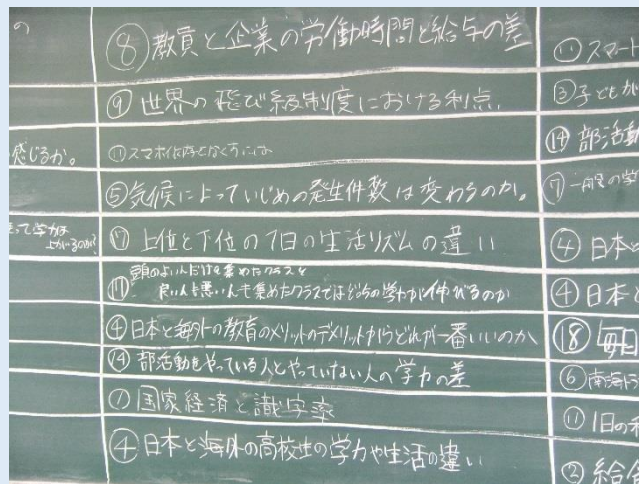 の
感じるか。
⑧教員と企業の労働時間と給与の差
⑨世界の飛び級制度における利点.
⑪スマホ依存をなくすには
⑤気候によっていじめの発生件数は変わるのか。
⑰上位と下位の1日の生活リズムの違い
⑰頭のよい人だけを集めたクラスと
良い人も悪い人も集めたクラスではどちらの学力が伸びるのか
④日本と海外の教育のメリットのデメリットからどれが一番いいのか
⑭部活動をやっている人とやっていない人の学力の差
①国家経済と識字率
④日本と海外の高校生の学力や生活の違い
⑪スマート
③子どもが
⑭部活動
⑦一般の学
④日本と
④日本と
⑱毎日
⑥南海
⑪1日の
②給食